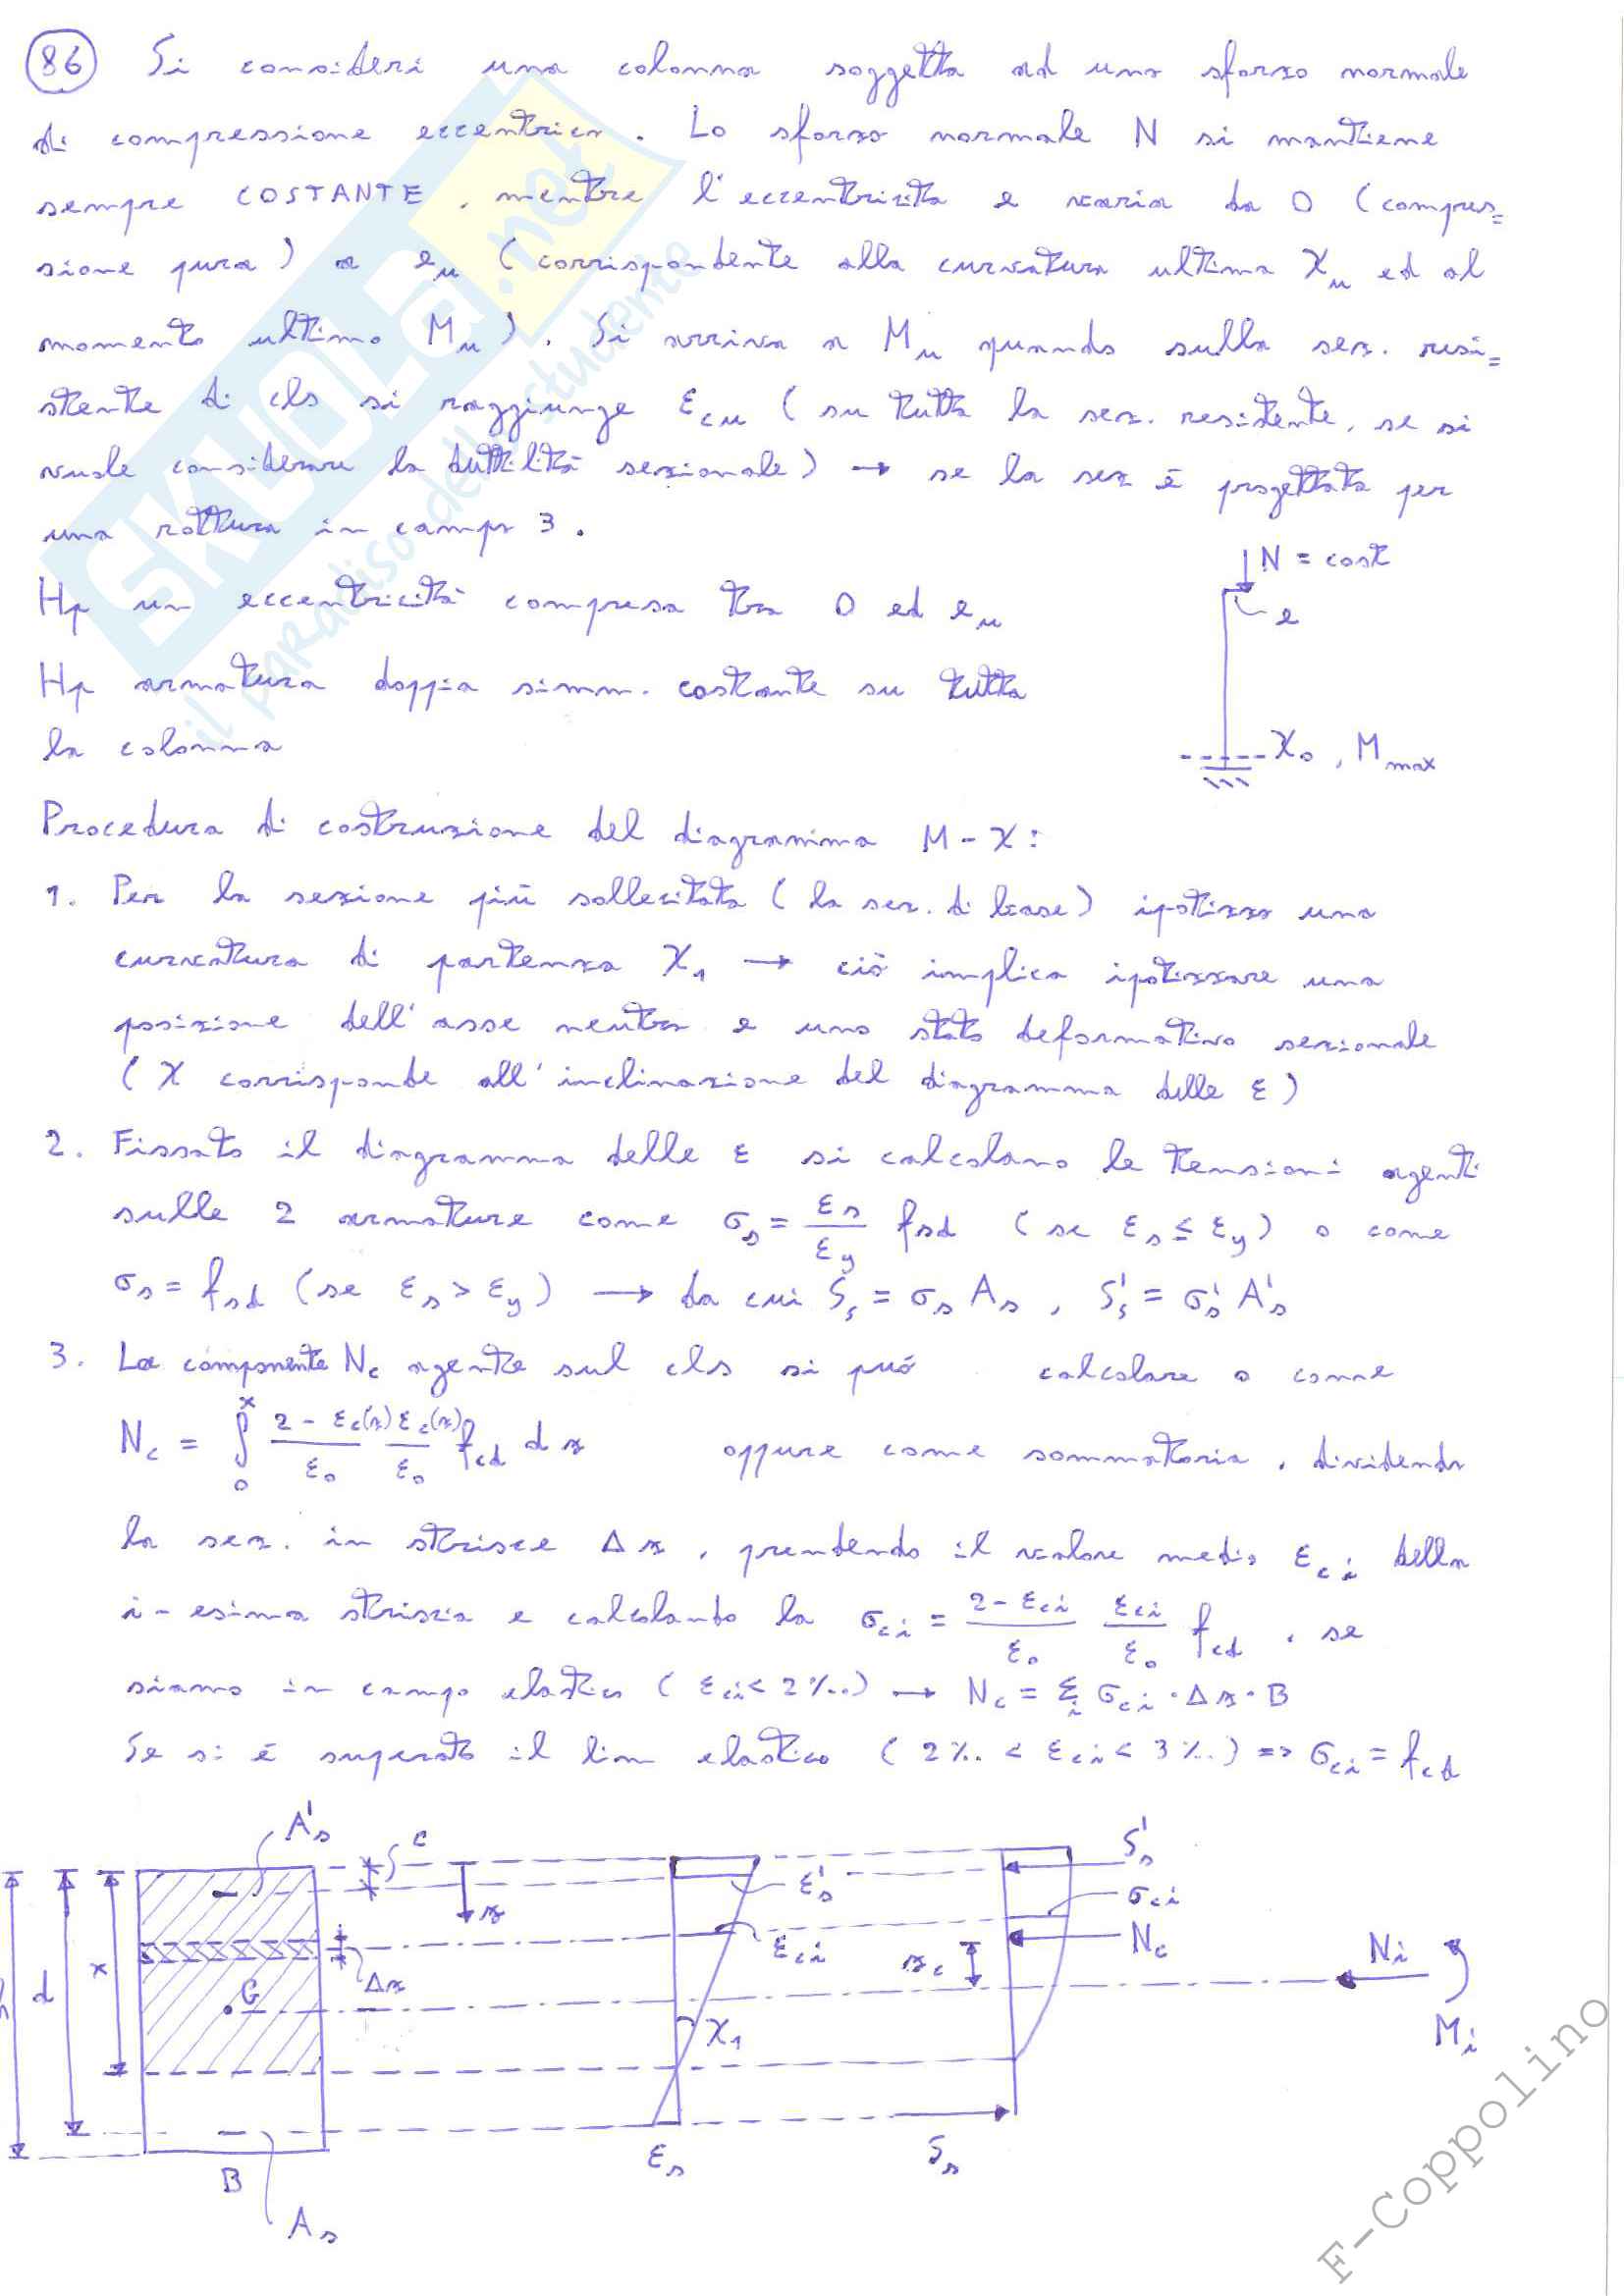 86 Si consideri una colonna soggetta ad uno sforzo normale
di compressione eccentrico. Lo sforzo normale N si mantiene
sempre COSTANTE, mentre l'eccentricità e varia da 0 (compres=
sione pura) a eu (corrispondente alla curvatura ultima χu ed al
momento ultimo Mu). Si arriva a Mu quando sulla sez. resi=
stente di cls si raggiunge εcu (su tutta la sez. resistente, se si
vuole considerare la duttilità sezionale) → se la sez è progettata per
una rottura in campo 3.
N = cost
e
Hp un eccentricità compresa tra 0 ed eu
Hp armatura doppia simm. costante su tutta
la colonna
χo, Mmax
Procedura di costruzione del diagramma M-χ:
1. Per la sezione più sollecitata (la sez. di base) ipotizzo una
curvatura di partenza χ1 → ciò implica ipotizzare una
posizione dell'asse neutro e uno stato deformativo sezionale
(χ corrisponde all'inclinazione del diagramma delle ε)
2. Fissato il diagramma delle ε si calcolano le tensioni agenti
sulle 2 armature come σs = εs/εy fsd (se εs ≤ εy) o come
σs = fsd (se εs > εy) → da cui Ss = σs As, S's = σ's A's
3. La componente Nc agente sul cls si può calcolare o come
Nc = ∫0x 2-εc(z)/εo εc(z)/εo fcd dz oppure come sommatoria, dividendo
la sez. in strisce Δz, prendendo il valore medio εci della
i-esima striscia e calcolando la σci = 2-εci/εo εci/εo fcd, se
siamo in campo elastico (εci < 2‰) → Nc = Σi σci · Δz · B
Se si è superato il lim elastico (2‰ < εci < 3‰) => σci = fcd
A's
c
z
ε's
S's
σci
εci
Nc
zc
Ni
Mi
h
d
x
Δz
G
χ1
B
As
εs
Ss
SKUOLA.net
il paradiso dello studente
F-Coppolino